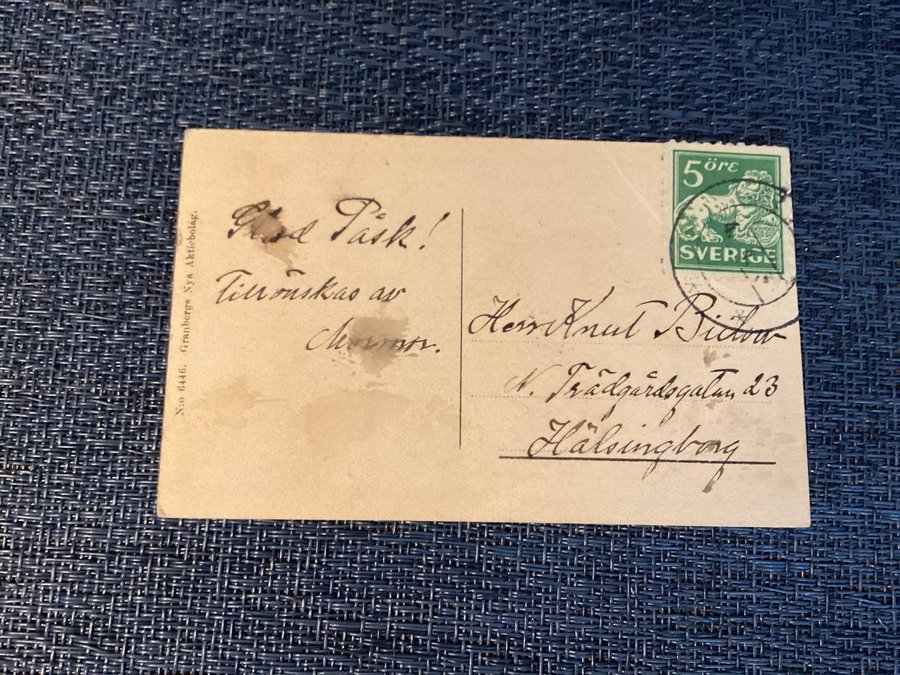 N:o 6446. Granbergs Nya Aktiebolag.
Glad Påsk!
Tillönskas av
Mormor.
5 öre
SVERIGE
Herr Knut Bülow
N. Trädgårdsgatan 23
Hälsingborg